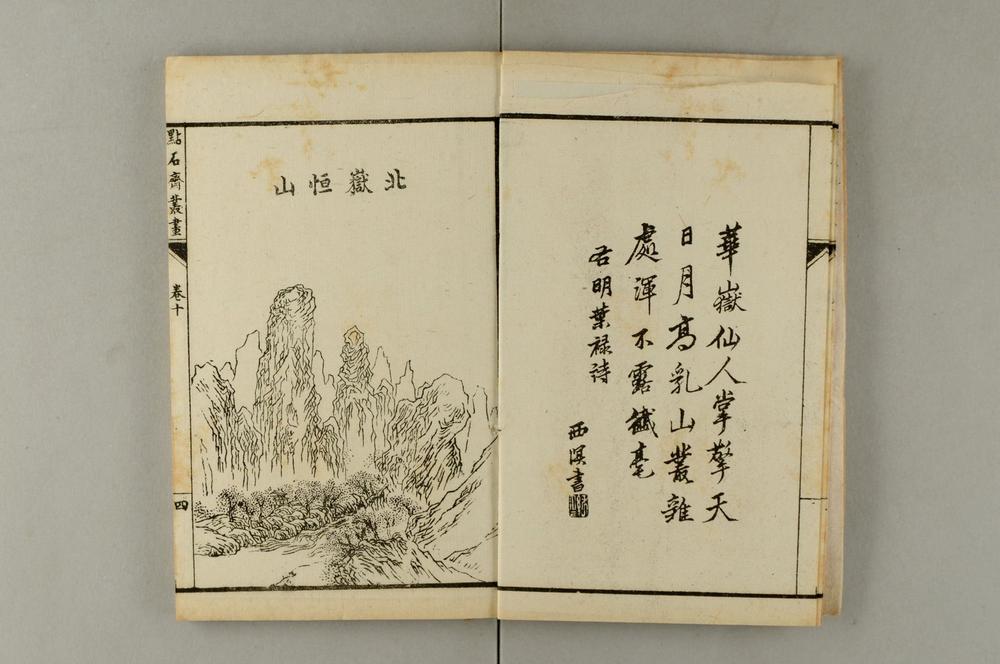 華嶽仙人掌擎天
日月高亂山叢雜
處渾不露纖毫
右明葉禄詩
西溟書
北嶽恒山
點石齋叢畫
卷十
四